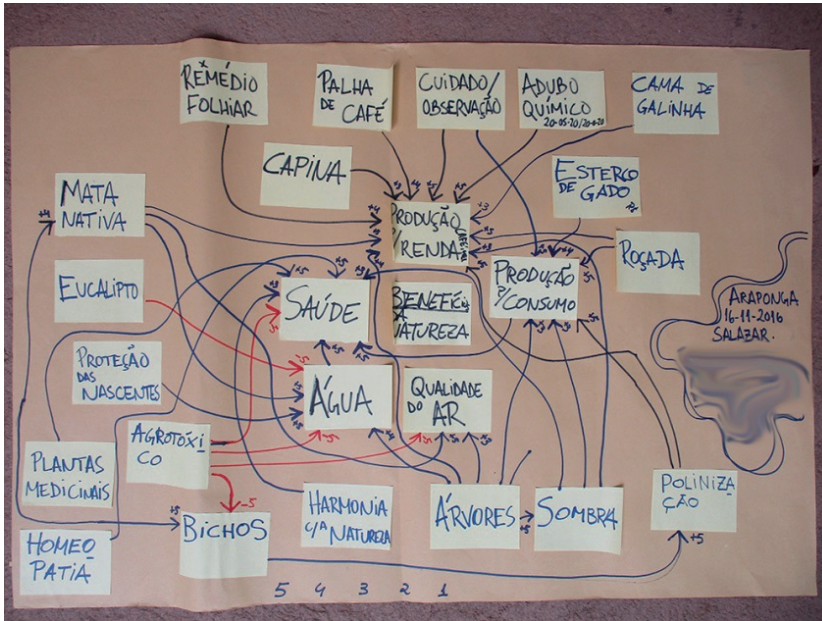 REMÉDIO
FOLHIAR
PALHA
DE CAFÉ
CUIDADO/
OBSERVAÇÃO
ADUBO
QUÍMICO
20-05-20/20-0-20
CAMA DE
GALINHA
CAPINA
ESTERCO
DE GADO
MATA
NATIVA
PRODUÇÃO
P/RENDA
ROÇADA
PRODUÇÃO
P/CONSUMO
EUCALIPTO
SAÚDE
BENEFÍ
A
NATUREZA
ARAPONGA
16-11-2016
SALAZAR.
PROTEÇÃO
DAS
NASCENTES
ÁGUA
QUALIDADE
DO AR
AGROTÓXI
CO
PLANTAS
MEDICINAIS
HARMONIA
C/A NATUREZA
ÁRVORES
SOMBRA
POLINIZA
ÇÃO
BICHOS
HOMEO
PATIA
+5
-5
+5
+5
5 4 3 2 1